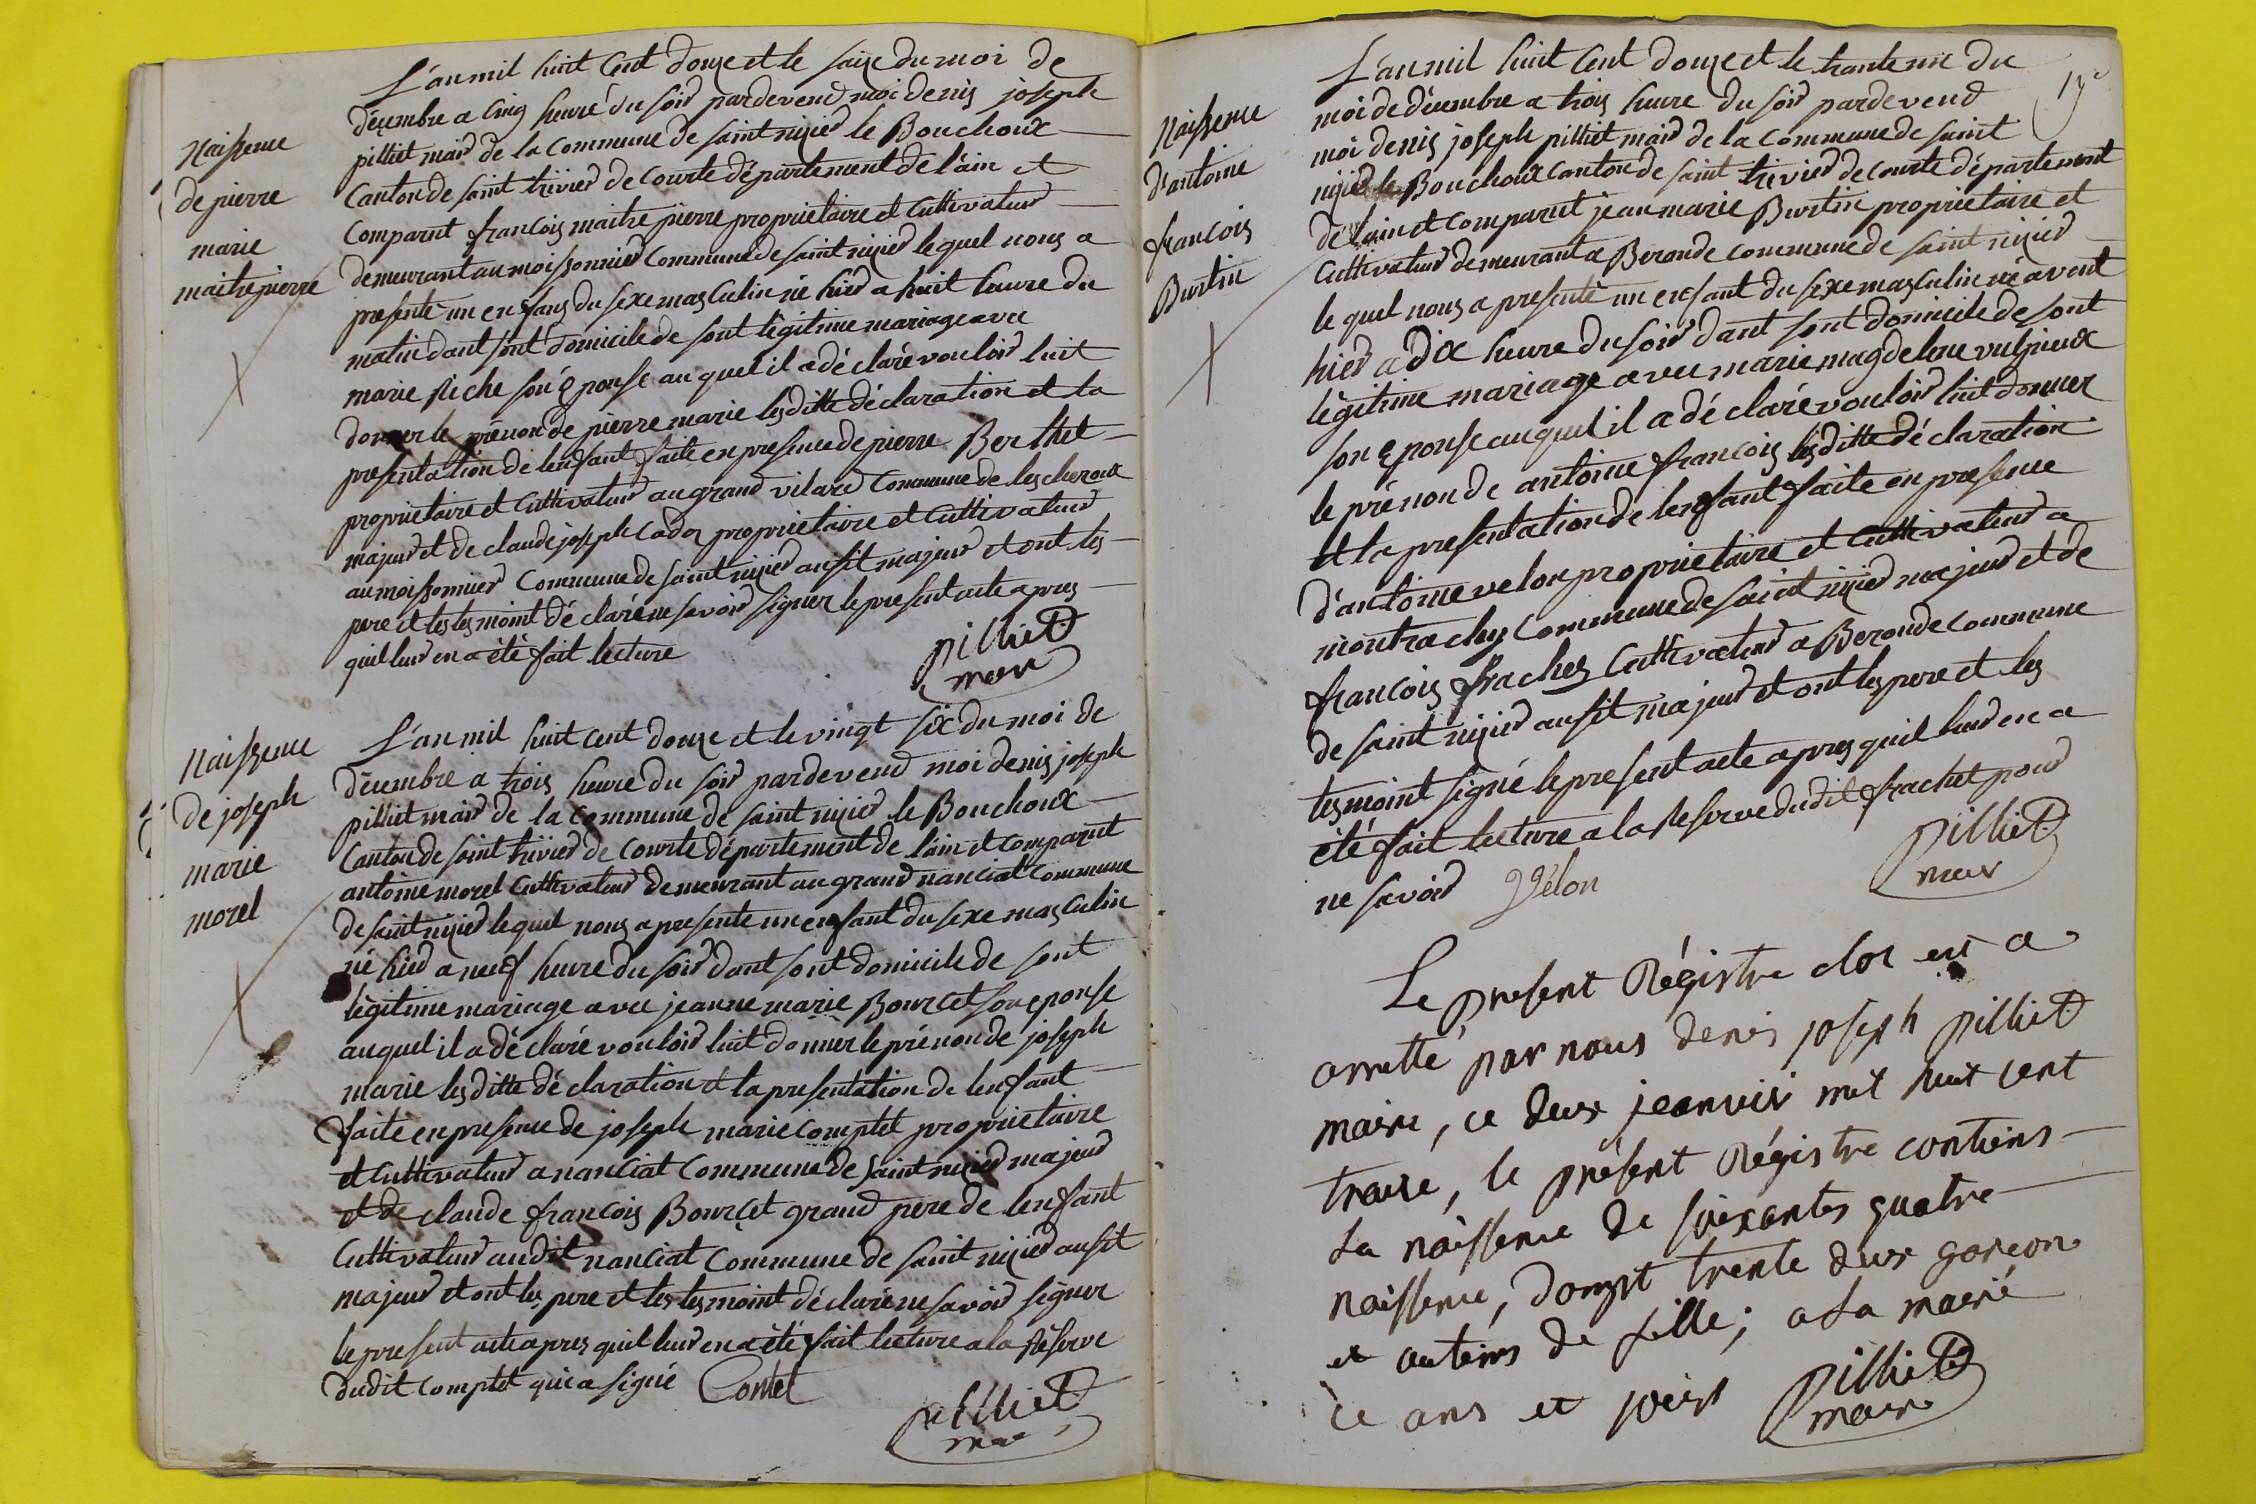 Naissence
de pierre
marie
maitrepierre
L'an mil huit Cent douze et le saize du moi de
décembre a cinq heure du soir pardevend moi denis joseph
pilliet mair de la Commune de saint nizier le Bouchoux
Canton de saint trivier de Courte département de l'ain et
Comparut francois maitrepierre proprietaire et Cultivateur
demeurant au moissonnier Commune de saint nizier le quel nous a
presenté un enfans du sexe masculin né hier a huit heure du
matin dant sont domicile de sont légitime mariage avec
marie Piche son éponse au quel il a déclaré vouloir luit
donner le prénon de pierre marie lesditte déclaration et la
presentation de lenfant faite en presence de pierre Berthet
proprietaire et Cultivateur au grand vilard Commune de lescheroux
majeur et de claude joseph Cadoz proprietaire et Cultivateur
au moissonnier Commune de saint nizier ausit majeur et ont les
pere et les tesmoint déclaré ne savoir signer le present acte apres
quil leur en a été fait lecture
pilliet
mair
Naissence
de joseph
marie
morel
L'an mil huit cent douze et le vingt six du moi de
décembre a trois heure du soir pardevend moi denis joseph
pilliet mair de la Commune de saint nizier le Bouchoux
Canton de saint trivier de Courte département de lain et comparut
antoine morel Cultivateur demeurant au grand nanciat Commune
de saint nizier le quel nous a presente un enfant du sexe masculin
né hier a neuf heure du soir dant sont domicile de sont
légitime mariage avec jeanne marie Bourcet son eponse
auquel il a déclaré vouloir luit donner le prénon de joseph
marie lesditte déclaration et la presentation de lenfant
faite en presence de joseph marie comptet proprietaire
et Cultivateur a nanciat Commune de saint nizier majeur
et de claude francois Bourcet grand pere de lenfant
Cultivateur audit nanciat Commune de saint nizier ausit
majeur et ont les pere et les tesmoint déclaré ne savoir signer
le present acte apres quil leur en a été fait lecture a la réserve
dudit comptet qui a signé Contet
pilliet
mair
17e
Naissence
d'antoine
francois
Burtin
L'an mil huit Cent douze et le trante un du
moi de décembre a trois heure du soir pardevend
moi denis joseph pilliet mair de la Commune de saint
nizier le Bouchoux canton de saint trivier de Courte département
de l'ain et comparut jean marie Burtin proprietaire et
Cultivateur demeurant a Beronde commune de saint nizier
le quel nous a presenté un enfant du sexe masculin né avent
hier a dix heure du soir dant sont domicile de sont
légitime mariage avec marie magdelene vulpieux
son éponse auquel il a déclaré vouloir luit donner
le prénon de antoine francois lesditte déclaration
et la presentation de lenfant faite en presence
d'antoine velon proprietaire et Cultivateur a
montrachy Commune de saint nizier majeur et de
francois frachez Cultivateur a Beronde commune
de saint nizier ausit majeur et ont les pere et les
tesmoint signé le present acte apres quil leur en a
été fait lecture a la Reserve dudit frachet pour
ne savoir Vélon
pilliet
mair
Le present Régistre clor est a
arretté par nous denis joseph pilliet
maire, ce deux jeanvier mil huit cent
traise, le présent Régistre contiens
La naissence de soixantes quatre
naissence, dompt trente deux garcon
et autems de fille; a La mairie
ce ans et jour
pilliet
maire